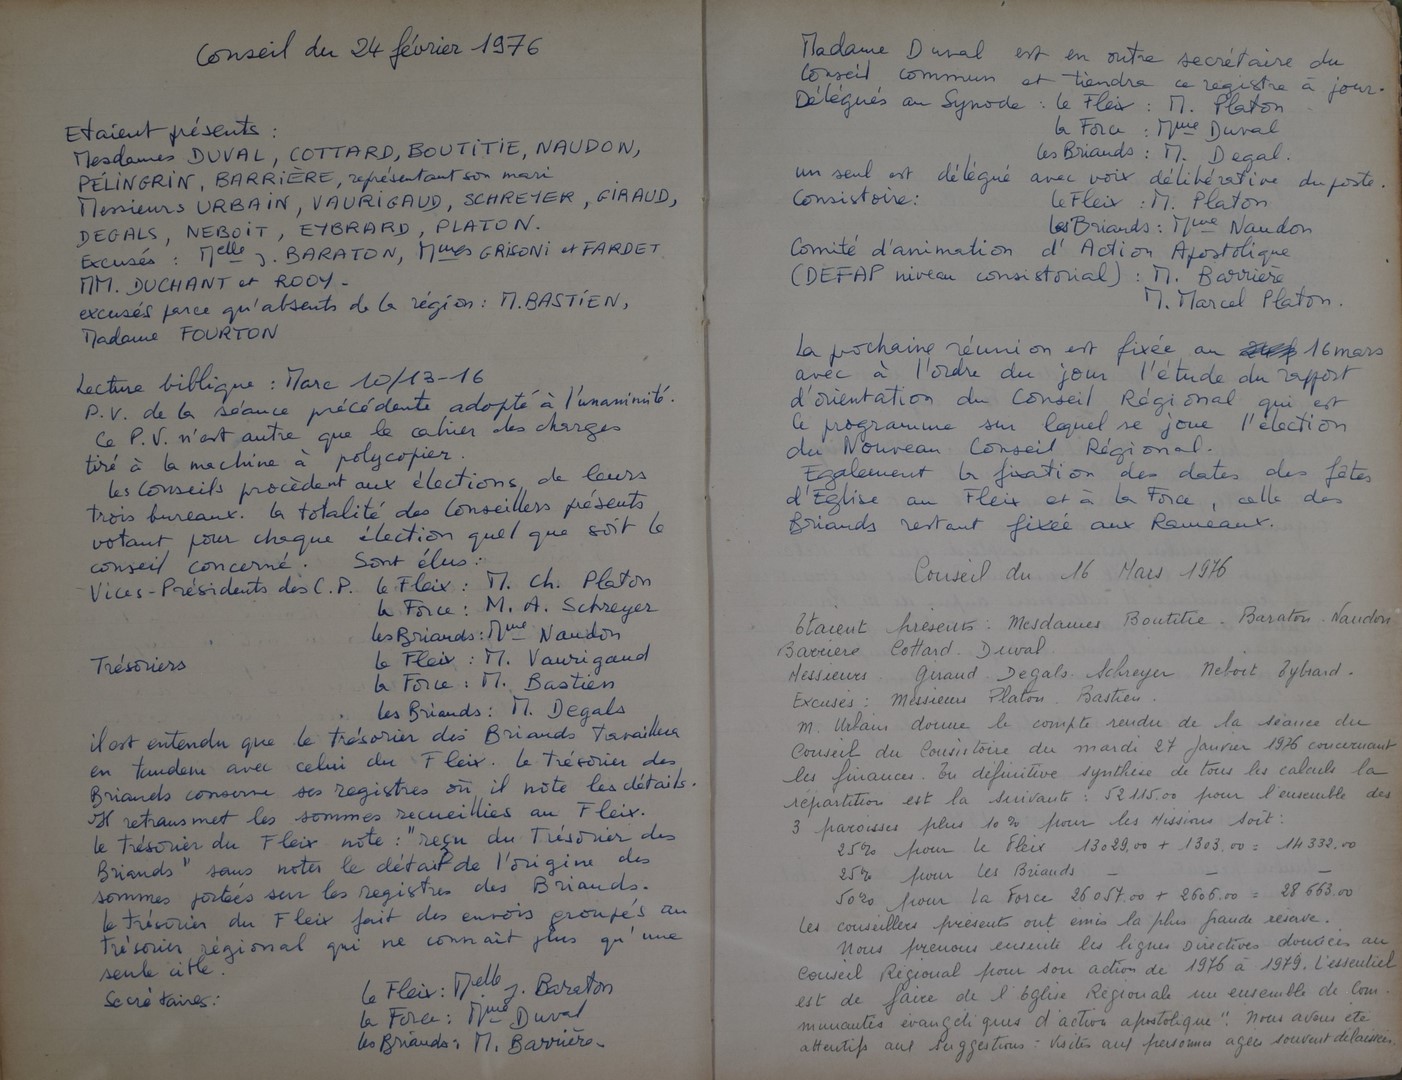 Conseil du 24 février 1976
Etaient présents :
Mesdames DUVAL, COTTARD, BOUTITIE, NAUDON,
PÉLINGRIN, BARRIÈRE, représentant son mari
Messieurs URBAIN, VAURIGAUD, SCHREYER, GIRAUD,
DEGALS, NEBOIT, EYBRARD, PLATON.
Excusés : Melle J. BARATON, Mmes GRISONI et FARDET
MM. DUCHANT et ROOY -
excusés parce qu'absents de la région : M. BASTIEN,
Madame FOURTON
Lecture biblique : Marc 10/13-16
P.V. de la séance précédente adopté à l'unanimité.
Ce P.V. n'est autre que le cahier des charges
tiré à la machine à polycopier.
Les Conseils procèdent aux élections de leurs
trois bureaux. la totalité des Conseillers présents
votant pour chaque élection quel que soit le
conseil concerné. Sont élus :
Vices-Présidents des C.P. le Fleix : M. Ch. Platon
la Force : M. A. Schreyer
les Briands : Mme Naudon
Trésoriers le Fleix : M. Vaurigaud
la Force : M. Bastien
les Briands : M. Degals
il est entendu que le trésorier des Briands Travaillera
en tandem avec celui du Fleix. Le trésorier des
Briands conserve ses registres où il note les détails.
Il retransmet les sommes recueillies au Fleix.
le trésorier du Fleix note : "reçu du Trésorier des
Briands" sans noter le détail de l'origine des
sommes portées sur les registres des Briands.
le trésorier du Fleix fait des envois groupés au
Trésorier régional qui ne connaît plus qu'une
seule cible.
Secrétaires : le Fleix : Melle J. Baraton
la Force : Mme Duval
les Briands : M. Barrière.
Madame Duval est en outre secrétaire du
Conseil commun et tiendra ce registre à jour.
Délégués au Synode : le Fleix : M. Platon
la Force : Mme Duval
les Briands : M. Degal.
un seul est délégué avec voix délibérative du poste.
Consistoire : le Fleix : M. Platon
les Briands : Mme Naudon
Comité d'animation d'Action Apostolique
(DEFAP niveau consistorial) : M. Barrière
M. Marcel Platon.
La prochaine réunion est fixée au 16 mars
avec à l'ordre du jour l'étude du rapport
d'orientation du Conseil Régional qui est
le programme sur lequel se joue l'élection
du Nouveau Conseil Régional.
Egalement la fixation des dates des fêtes
d'Eglise au Fleix et à la Force, celle des
Briands restant fixée aux Rameaux.
Conseil du 16 Mars 1976
Etaient présents : Mesdames Boutitie. Baraton. Naudon
Barrière Cottard. Duval
Messieurs Giraud. Degals. Schreyer Neboit Eybrard.
Excusés : Messieurs Platon. Bastien.
M. Urbain donne le compte rendu de la séance du
Conseil du Consistoire du mardi 27 Janvier 1976 concernant
les finances. En définitive synthèse de tous les calculs la
répartition est la suivante : 52 115.00 pour l'ensemble des
3 paroisses plus 10 % pour les Missions soit :
25% pour le Fleix 13029,00 + 1303,00 = 14 332,00
25% pour les Briands - - -
50% pour la Force 26 057.00 + 2606.00 = 28 663.00
Les conseillers présents ont émis la plus grande réserve.
Nous prenons ensuite les lignes Directives données au
Conseil Régional pour son action de 1976 à 1979. L'essentiel
est de faire de l'Eglise Régionale un ensemble de Com-
munautés évangéliques d'action apostolique". Nous avons été
attentifs aux suggestions : Visites aux personnes agées souvent délaissées.